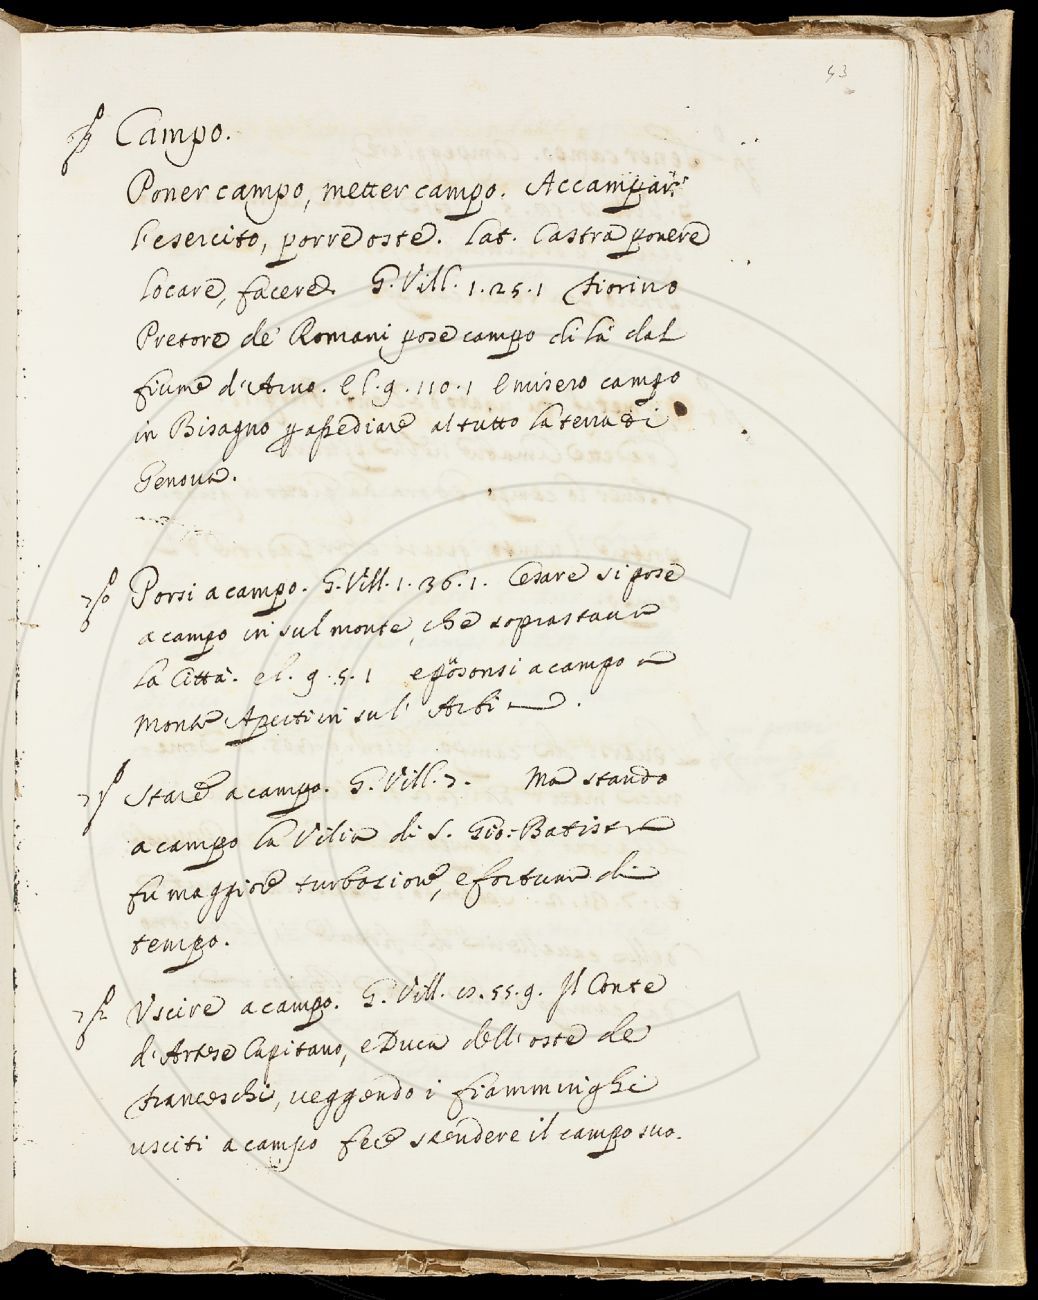 53
Campo.
Poner campo, metter campo. Accampar
l'esercito, porre oste. Lat. Castra ponere
locare, facere. G. Vill. 1.25.1 Fiorino
Pretore de' Romani pose campo di là dal
fiume d'Arno. e l. 9. 110.1 e misero campo
in Bisagno p assediare al tutto la terra di
Genova.
Porsi a campo. G. Vill. 1.36.1. Cesare si pose
a campo in sul monte, che soprastava
la Città. e l. 9.5.1 e posonsi a campo a
Monte Aperti in su l' Arbia.
Stare a campo. G. Vill. 7. Ma stando
a campo la Vilia di S. Gio: Batista
fu maggiore turbazione, e fortuna di
tempo.
Uscire a campo. G. Vill. 55.9. Il Conte
d'Artese Capitano, e Duca dell'oste de
Franceschi, veggendo i fiamminghi
usciti a campo fece stendere il campo suo.